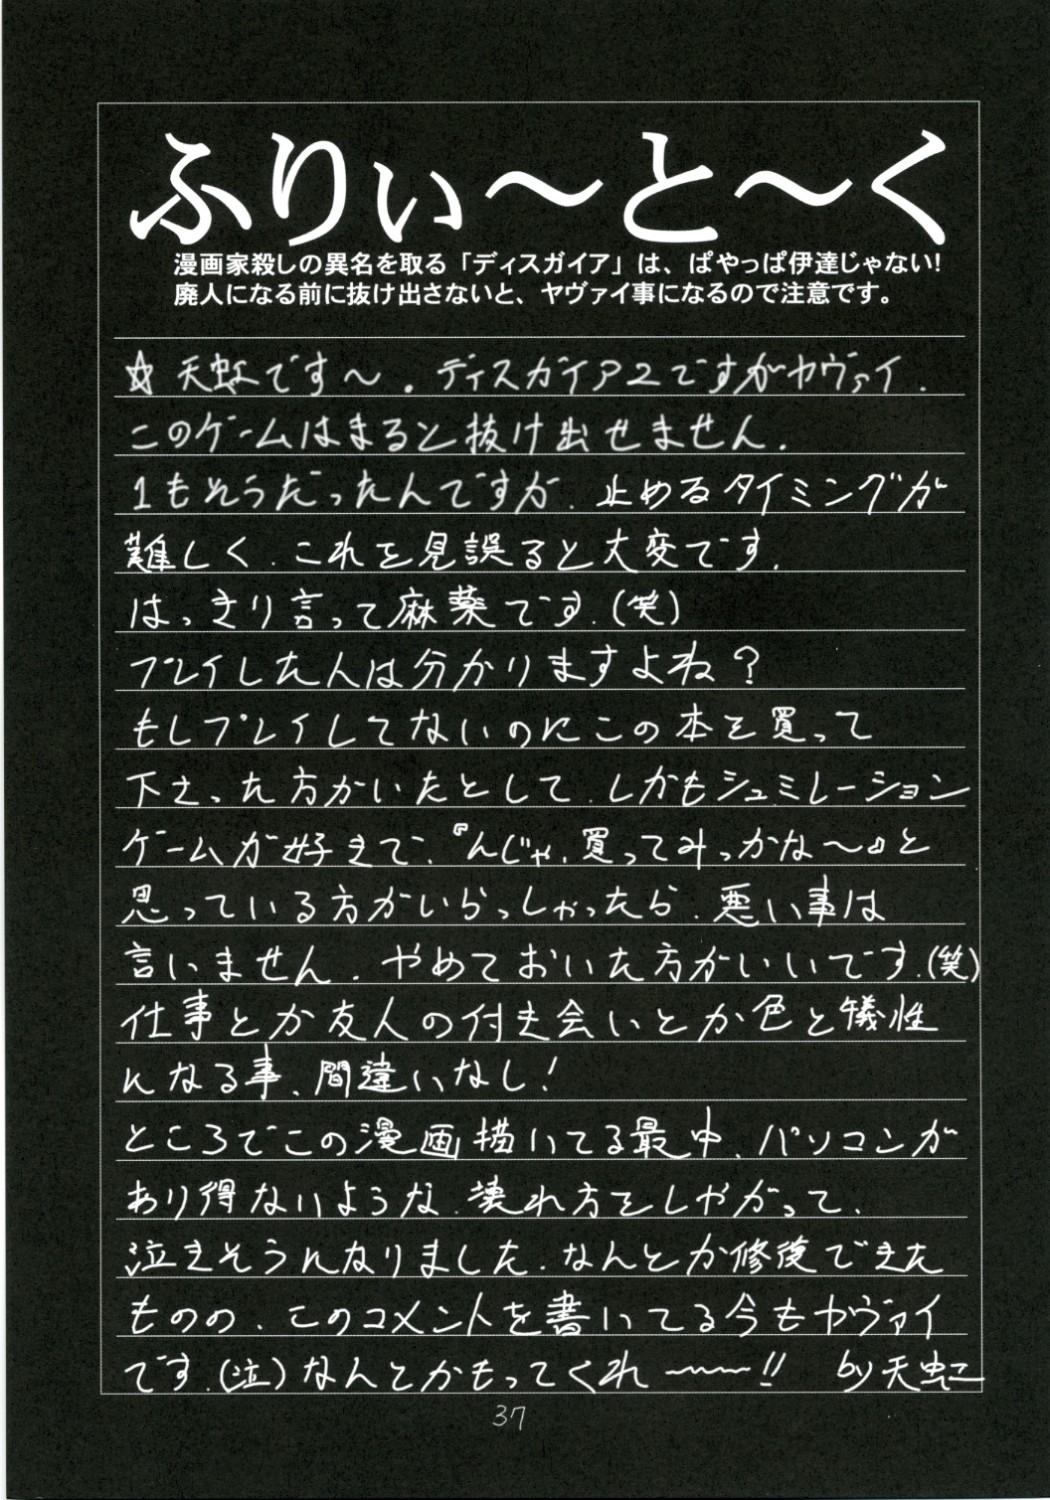 ふりぃ～と～く
漫画家殺しの異名を取る「ディスガイア」は、ぱやっぱ伊達じゃない!
廃人になる前に抜け出さないと、ヤヴァイ事になるので注意です。
☆天虹です～。ディスガイア2ですがヤヴァイ.
このゲームはまると抜け出せません.
1もそうだったんですが.止めるタイミングが
難しく.これを見誤ると大変です.
はっきり言って麻薬です.(笑)
プレイした人は分かりますよね?
もしプレイしてないのにこの本を買って
下さった方がいたとして.しかもシュミレーション
ゲームが好きで、『んじゃ.買ってみっかな～』と
思っている方がいらっしゃったら.悪い事は
言いません.やめておいた方がいいです.(笑)
仕事とか友人の付き会いとか色と犠性
になる事、間違いなし!
ところでこの漫画描いてる最中、パソコンが
あり得ないような.壊れ方をしやがって、
泣きそうになりました.なんとか修復できた
ものの、このコメントを書いてる今もヤヴァイ
です.(泣)なんとかもってくれ～～!! by天虹
37